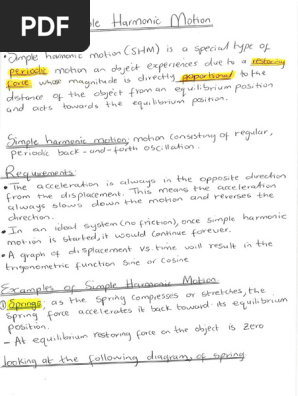 PDF
Simple Harmonic Motion
• Simple harmonic motion (SHM) is a special type of
periodic motion an object experiences due to a restoring
force whose magnitude is directly proportional to the
distance of the object from an equilibrium position
and acts towards the equilibrium position.
Simple harmonic motion: motion consisting of regular,
periodic back-and-forth oscillation.
Requirements:
• The acceleration is always in the opposite direction
from the displacement. This means the acceleration
always slows down the motion and reverses the
direction.
• In an ideal system (no friction), once simple harmonic
motion is started, it would continue forever.
• A graph of displacement vs. time will result in the
trigonometric function sine or cosine
Examples of Simple Harmonic Motion
① Springs; as the spring compresses or stretches, the
spring force accelerates it back toward its equilibrium
position.
- At equilibrium restoring force on the object is zero
looking at the following diagram, of spring